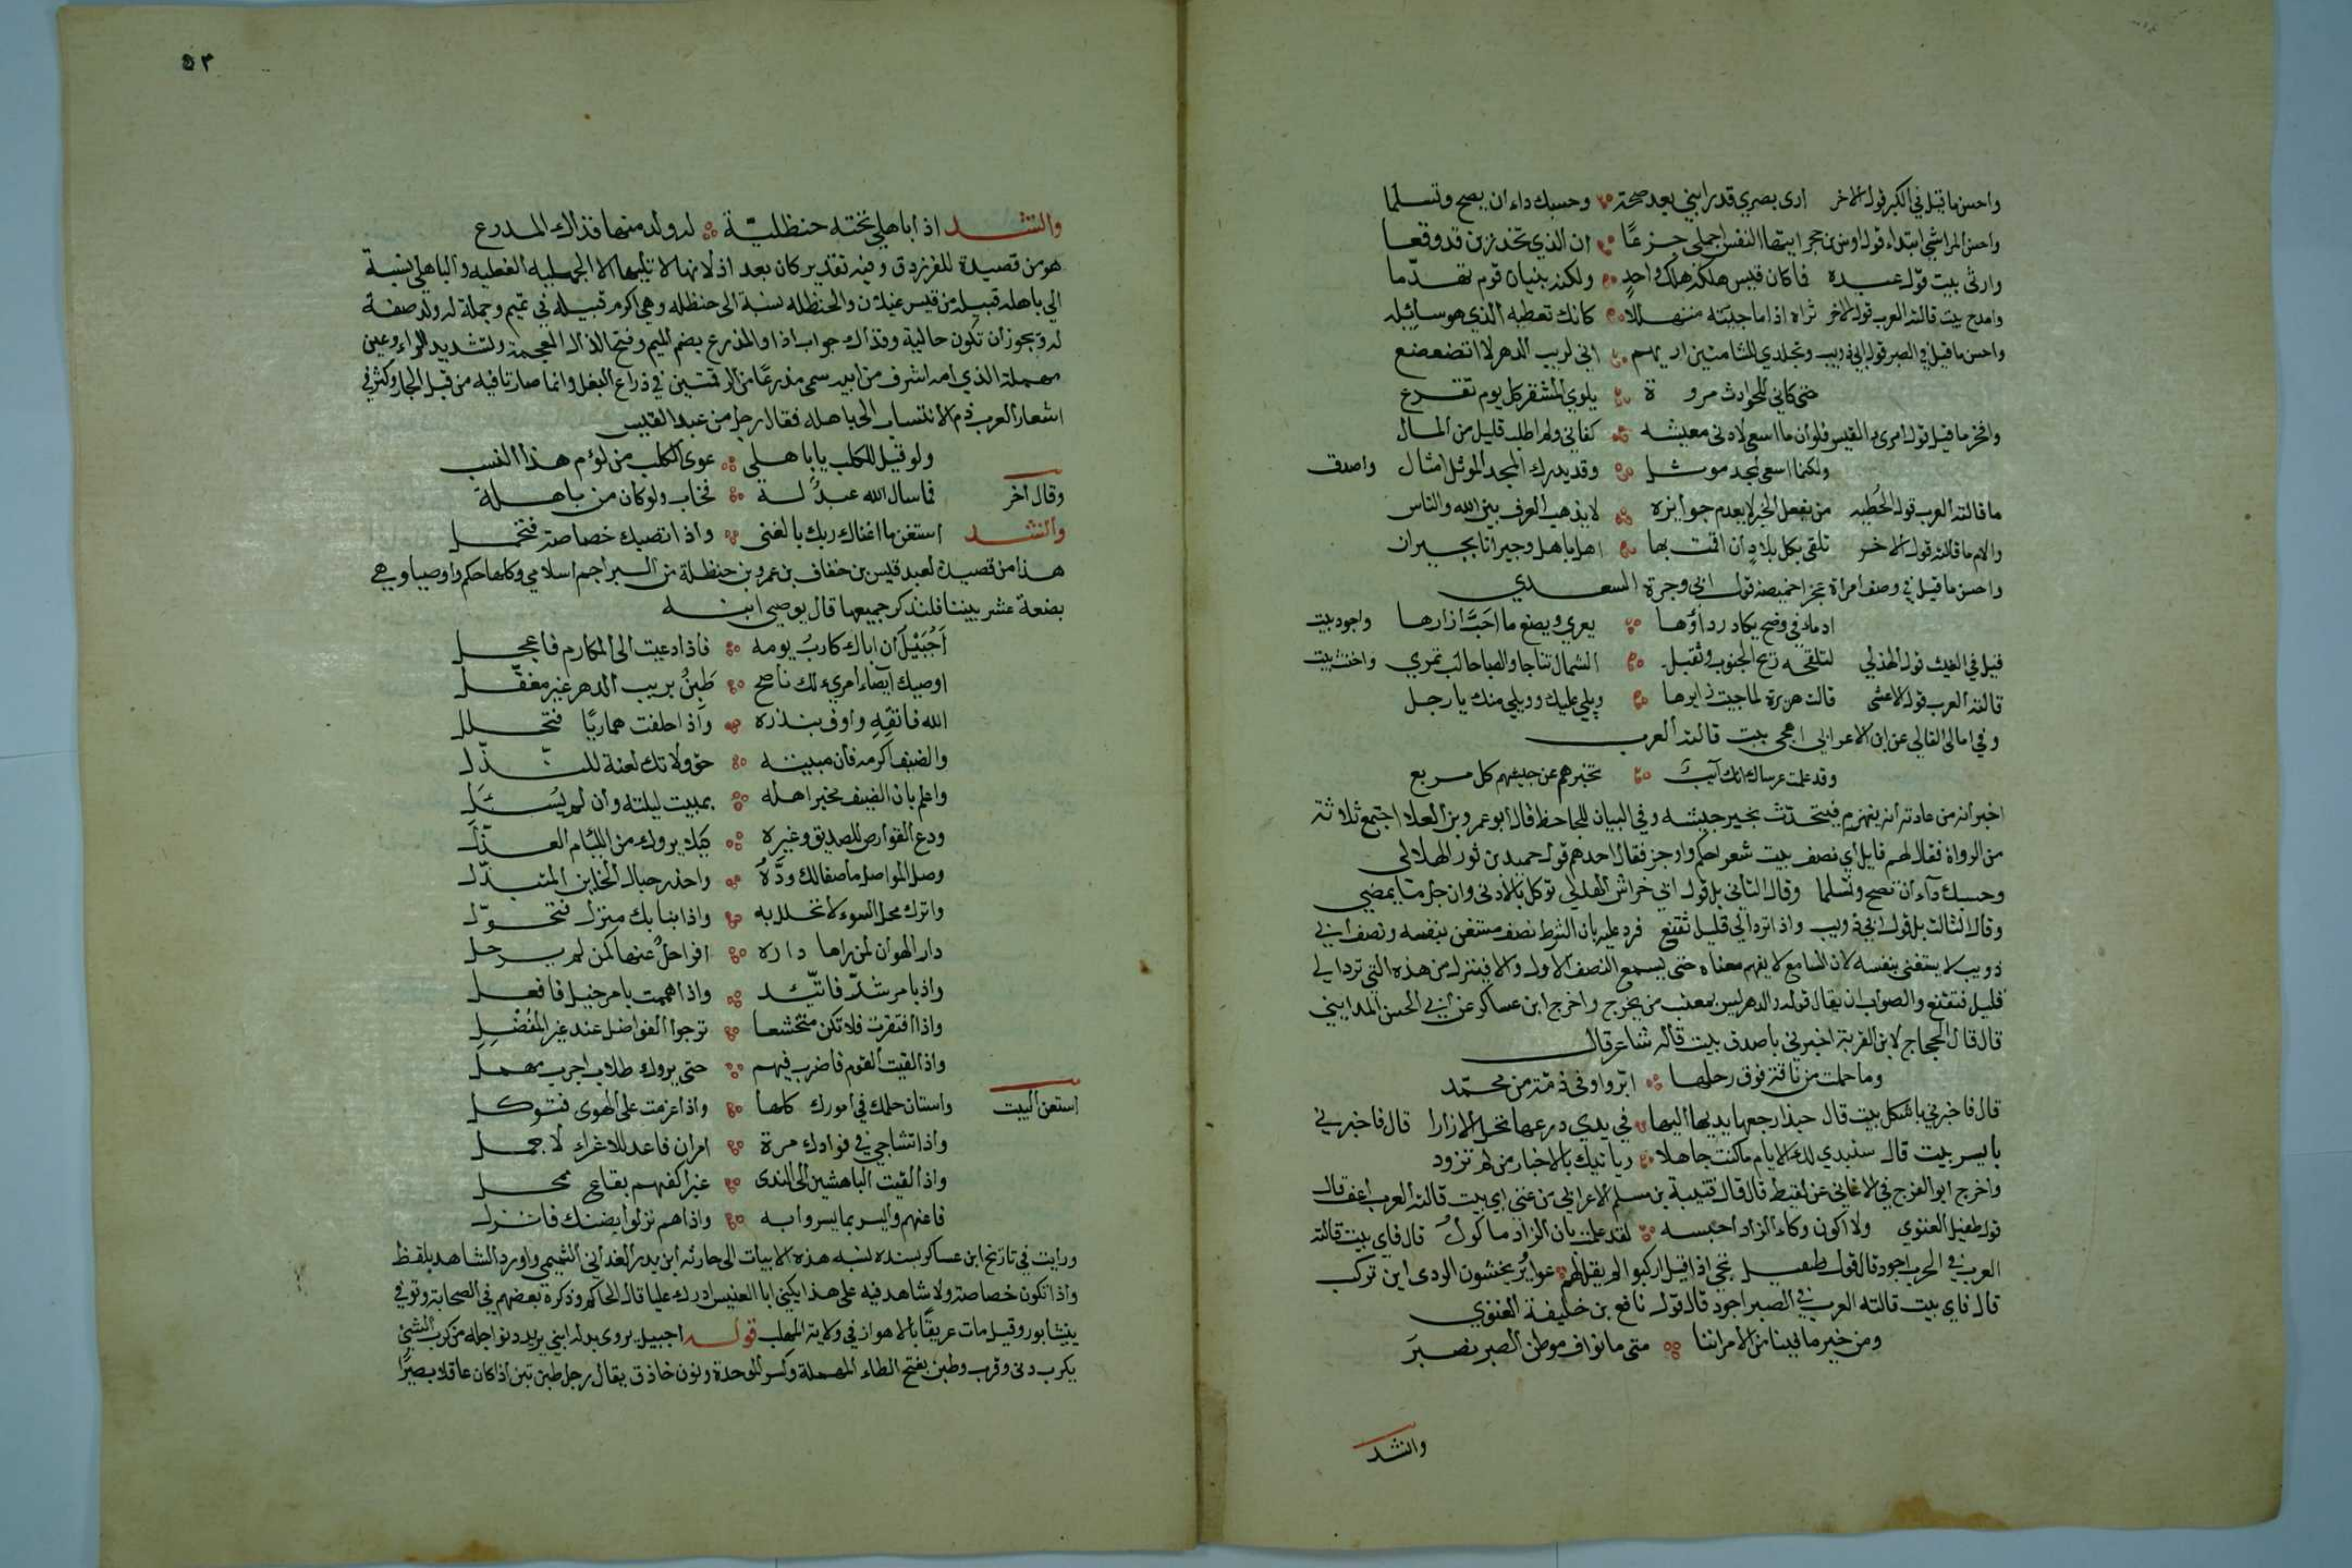 واحسن ما قيل في الكبر قول الاخر ارى بصري قد رابني بعد صحة وحسبك داء ان يصح وتسلما
واحسن المراثي ابتداء قول اوس بن حجر ايتها النفس اجملي جزعًا ان الذي تحذرين قد وقعا
وارثى بيت قول عبيده فما كان قيس هلكه هلك واحدٍ ولكنه بنيان قوم تهدّما
وامدح بيت قالته العرب قول الاخر تراه اذا ما جئته متهللا كانك تعطيه الذي هو سائله
واحسن ما قيل في الصبر قول ابي ذويب وتجلدي للشامتين اريهم اني لريب الدهر لا اتضعضع
حتى كاني للحوادث مروة بلوى المشقر كل يوم تقرع
وافخر ما قيل قول امرئ القيس فلو ان ما اسعى لادنى معيشه كفاني ولم اطلب قليل من المال
ولكنما اسعى لمجد موثل وقد يدرك المجد الموثل امثال واصدق
ما قالته العرب قول الحُطيه من يفعل الخير لا يعدم جوازيه لا يذهب العرف بين الله والناس
والام ما قالته قول الاخر تلقى بكل بلادٍ ان اقمت بها اهلا باهل وجيرانا بجيران
واحسن ما قيل في وصف امراة عجزا خميصة قول ابي وجرة السعدي
ادماء في وضح يكاد رداؤها يعري ويصنع ما احَبَّ ازارها واجود بيت
قيل في الغيث قول الهذلي لتلقحه ريح الجنوب وتقبل الشمال نتاجا والصبا حالب تمري واخنث بيت
قالته العرب قول الاعشى قالت هريرة لما جيت زايرها ويلي عليك وويلي منك يا رجل
وفي امالي القالي عن ابن الاعرابي اهجى بيت قالته العرب
وقد علمت عرساك انك آيبٌ تخبرهم عن جيشهم كل مربع
اخبر انه من عادته انه ينهزم فيتحدث بخبر جيشه وفي البيان للجاحظ قال ابو عمرو بن العلا اجتمع ثلاثة
من الرواة فقال لهم قايل اي نصف بيت شعر احكم واوجز فقال احدهم قول حميد بن ثور الهلالي
وحسبك دآء ان تصح وتسلما وقال الثاني بل قول ابي خراش الهذلي توكل بالادنى وان جل ما يمضي
وقال الثالث بل قول ابي ذويب واذا ترد الى قليل تقنع فرد عليه بان الشرط نصف مستغن بنفسه ونصف ابي
ذويب لا يستغنى بنفسه لان السامع لا يفهم معناه حتى يسمع النصف الاول والا فيقول من هذه التي ترد الى
قليل فتقنع والصواب ان يقال قوله والدهر ليس بمعتب من يجزع واخرج ابن عساكر عن ابي الحسن المدايني
قال قال الحجاج لابن القرية اخبرني باصدق بيت قاله شاعر قال
وما حملت من ناقة فوق رحلها ابرّ واوفى ذمّة من محمّد
قال فاخبرني باشكل بيت قال حبذا رجعها يديها اليها في يدي درعها تحل الازارا قال فاخبرني
بايسر بيت قال ستبدي لك الايام ما كنت جاهلا وياتيك بالاخبار من لم تزود
واخرج ابو الفرج في الاغاني عن لقيط قال قال قتيبة بن مسلم لاعرابي من غنى اي بيت قالته العرب اعف قال
قول طفيل الغنوي ولا اكون وكاء الزاد احبسه لقد علمت بان الزاد ماكولُ قال فاي بيت قالته
العرب في الحرب اجود قال قول طفيل بحي اذا قيل اركبوا لم يقل لهم عواويرُ يخشون الردى اين تركب
قال فاي بيت قالته العرب في الصبر اجود قال قول نافع بن خليفة الغنوي
ومن خير ما فينا من الامر اننا متى ما نواف موطن الصبر نصبرَ
وانشد
٥٣
وانشد اذا باهلي تحته حنظليّة له ولد منها فذاك المدرع
هو من قصيدة للفرزدق وفيه تقدير كان بعد اذا لانها لا تليها الا الجمليه الفعليه والباهلي نسبة
الي باهله قبيله من قيس عيلان والحنظله نسبة الى حنظله وهي اكرم قبيله في تميم وجملة له ولد صفة
له ويجوز ان تكون حالية وفذاك جواب اذا والمذرع بضم الميم وفتح الذال المعجمة وتشديد الراء وعين
مهملة الذي امه اشرف من ابيه سمي مذرعًا من الرقمتين في ذراع البغل وانما صارتا فيه من قبل الحمار وكثر في
اشعار العرب ذم الانتساب الى باهله فقال رجل من عبد القيس
ولو قيل للكلب يا باهلي عوى الكلب من لؤم هذا النسب
وقال اخر فما سال الله عبدٌ له فخاب ولو كان من باهلة
وانشد استغن ما اغناك ربك بالغنى واذا تصبك خصاصة فتجمل
هذا من قصيدة لعبد قيس بن خفاف بن عمرو بن حنظلة من البراجم اسلامي وكلها حكم واوصيا وهي
بضعة عشر بيتا فلنذكر جميعها قال يوصي ابنه
اَجُبَيْلُ ان اباك كاربُ يومه فاذا دعيت الى المكارم فاعجل
اوصيك ايصاء امرئ لك ناصح طَبِنُ بريب الدهر غير مغفّل
الله فاتقه واوف بنذره واذا حلفت مماريًا فتحلل
والضيف اكرمه فان مبيته حق ولا تك لعنة للنزّل
واعلم بان الضيف مخبر اهله بمبيت ليلته وان لم يُسئَلِ
ودع القوارص للصديق وغيره كيلا يروك من اللئام العذّل
وصل المواصل ما صفا لك ودّهُ واحذر حبال الخاين المتبذّل
واترك محل السوء لا تحلل به واذا نبا بك منزل فتحوّل
دار الهوان لمن راها داره افراحلٌ عنها كمن لم يرحل
واذا هممت بامر شرّ فاتّئد واذا هممت بامر خير فافعل
واذا افتقرت فلا تكن متخشعا ترجوا الفواضل عند غير المُفْضِلِ
واذا لقيت القوم فاضرب فيهم حتى يروك طلاء اجرب مهملِ
استغن البيت واستان حلمك في امورك كلها واذا عزمت على الهوى فتوكل
واذا تشاجر في فوادك مرة امران فاعمد للاعز الاجمل
واذا لقيت الباهشين الى الندى غبرا اكفهم بقاع ممحل
فاعنهم وايسر بما يسروا به واذا هم نزلوا بضنك فانزل
ورايت في تاريخ ابن عساكر بسنده نسبه هذه الابيات الى حارثه ابن بدر الغداني التميمي واورد الشاهد بلفظ
واذا تكون خصاصة ولا شاهد فيه على هذا يكنى ابا العنبس ادرك عليا قال الحاكم وذكره بعضهم في الصحابة وتوفي
بنيشابور وقيل مات غريقًا بالاهواز في ولاية المهلب قوله اجبيل يروى بدله ابني يريد دنو اجله من كرب الشئ
يكرب دنى وقرب وطبن بفتح الطاء المهملة وكسر الموحدة ونون حاذق يقال رجل طبن تبن اذا كان عاقلا بصيرًا